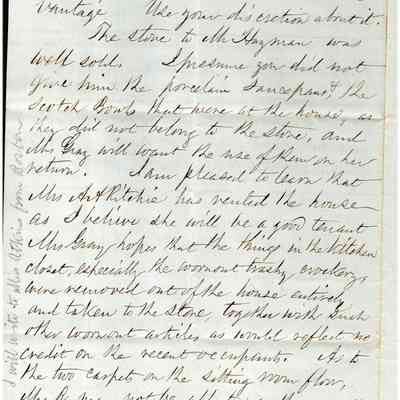 vantage Use your discretion about it.
The stove to Mr Hayman was
well sold. I presume you did not
give him the porcelain saucepans & the
Scotch Bowls that were at the house, as
they did not belong to the stove, and
Mrs Gray will want the use of them on her
return. I am pleased to learn that
Mrs A A Ritchie has rented the house
as I believe she will be a good tenant
Mrs Gray hopes that the things in the kitchen
closet, especially the wornout trashy crockery,
were removed out of the house entirely
and taken to the store together with such
other wornout articles as would reflect no
credit on the recent occupants. As to
the two carpets on the sitting room floor,
Mrs not be
I will write to Miss Atkins from Boston